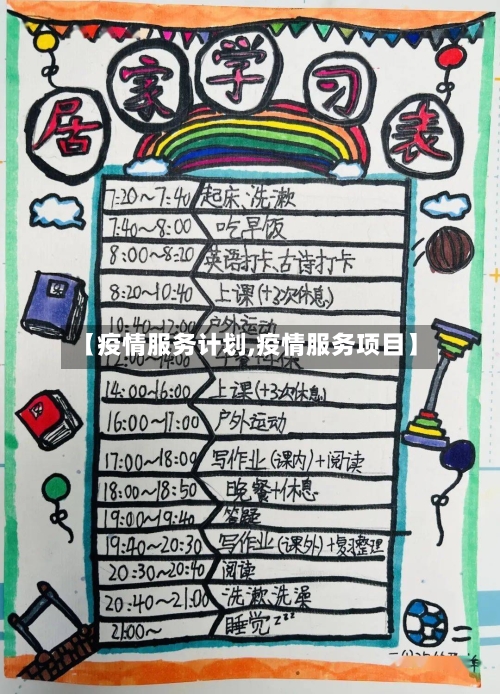 居家学习表
7:20~7:40 起床、洗漱
7:40~8:00 吃早饭
8:00~8:20 英语打卡、古诗打卡
8:20~10:40 上课(+3次休息)
10:40~12:00 户外运动
【疫情服务计划,疫情服务项目】
14:00~16:00 上课(+3次休息)
16:00~17:00 户外运动
17:00~18:00 写作业(课内)+阅读
18:00~18:50 晚餐+休息
19:00~19:40
19:40~20:30 写作业(课外)+复习整理
20:30~20:40 阅读
20:40~21:00 洗漱、洗澡
21:00~ 睡觉zzz